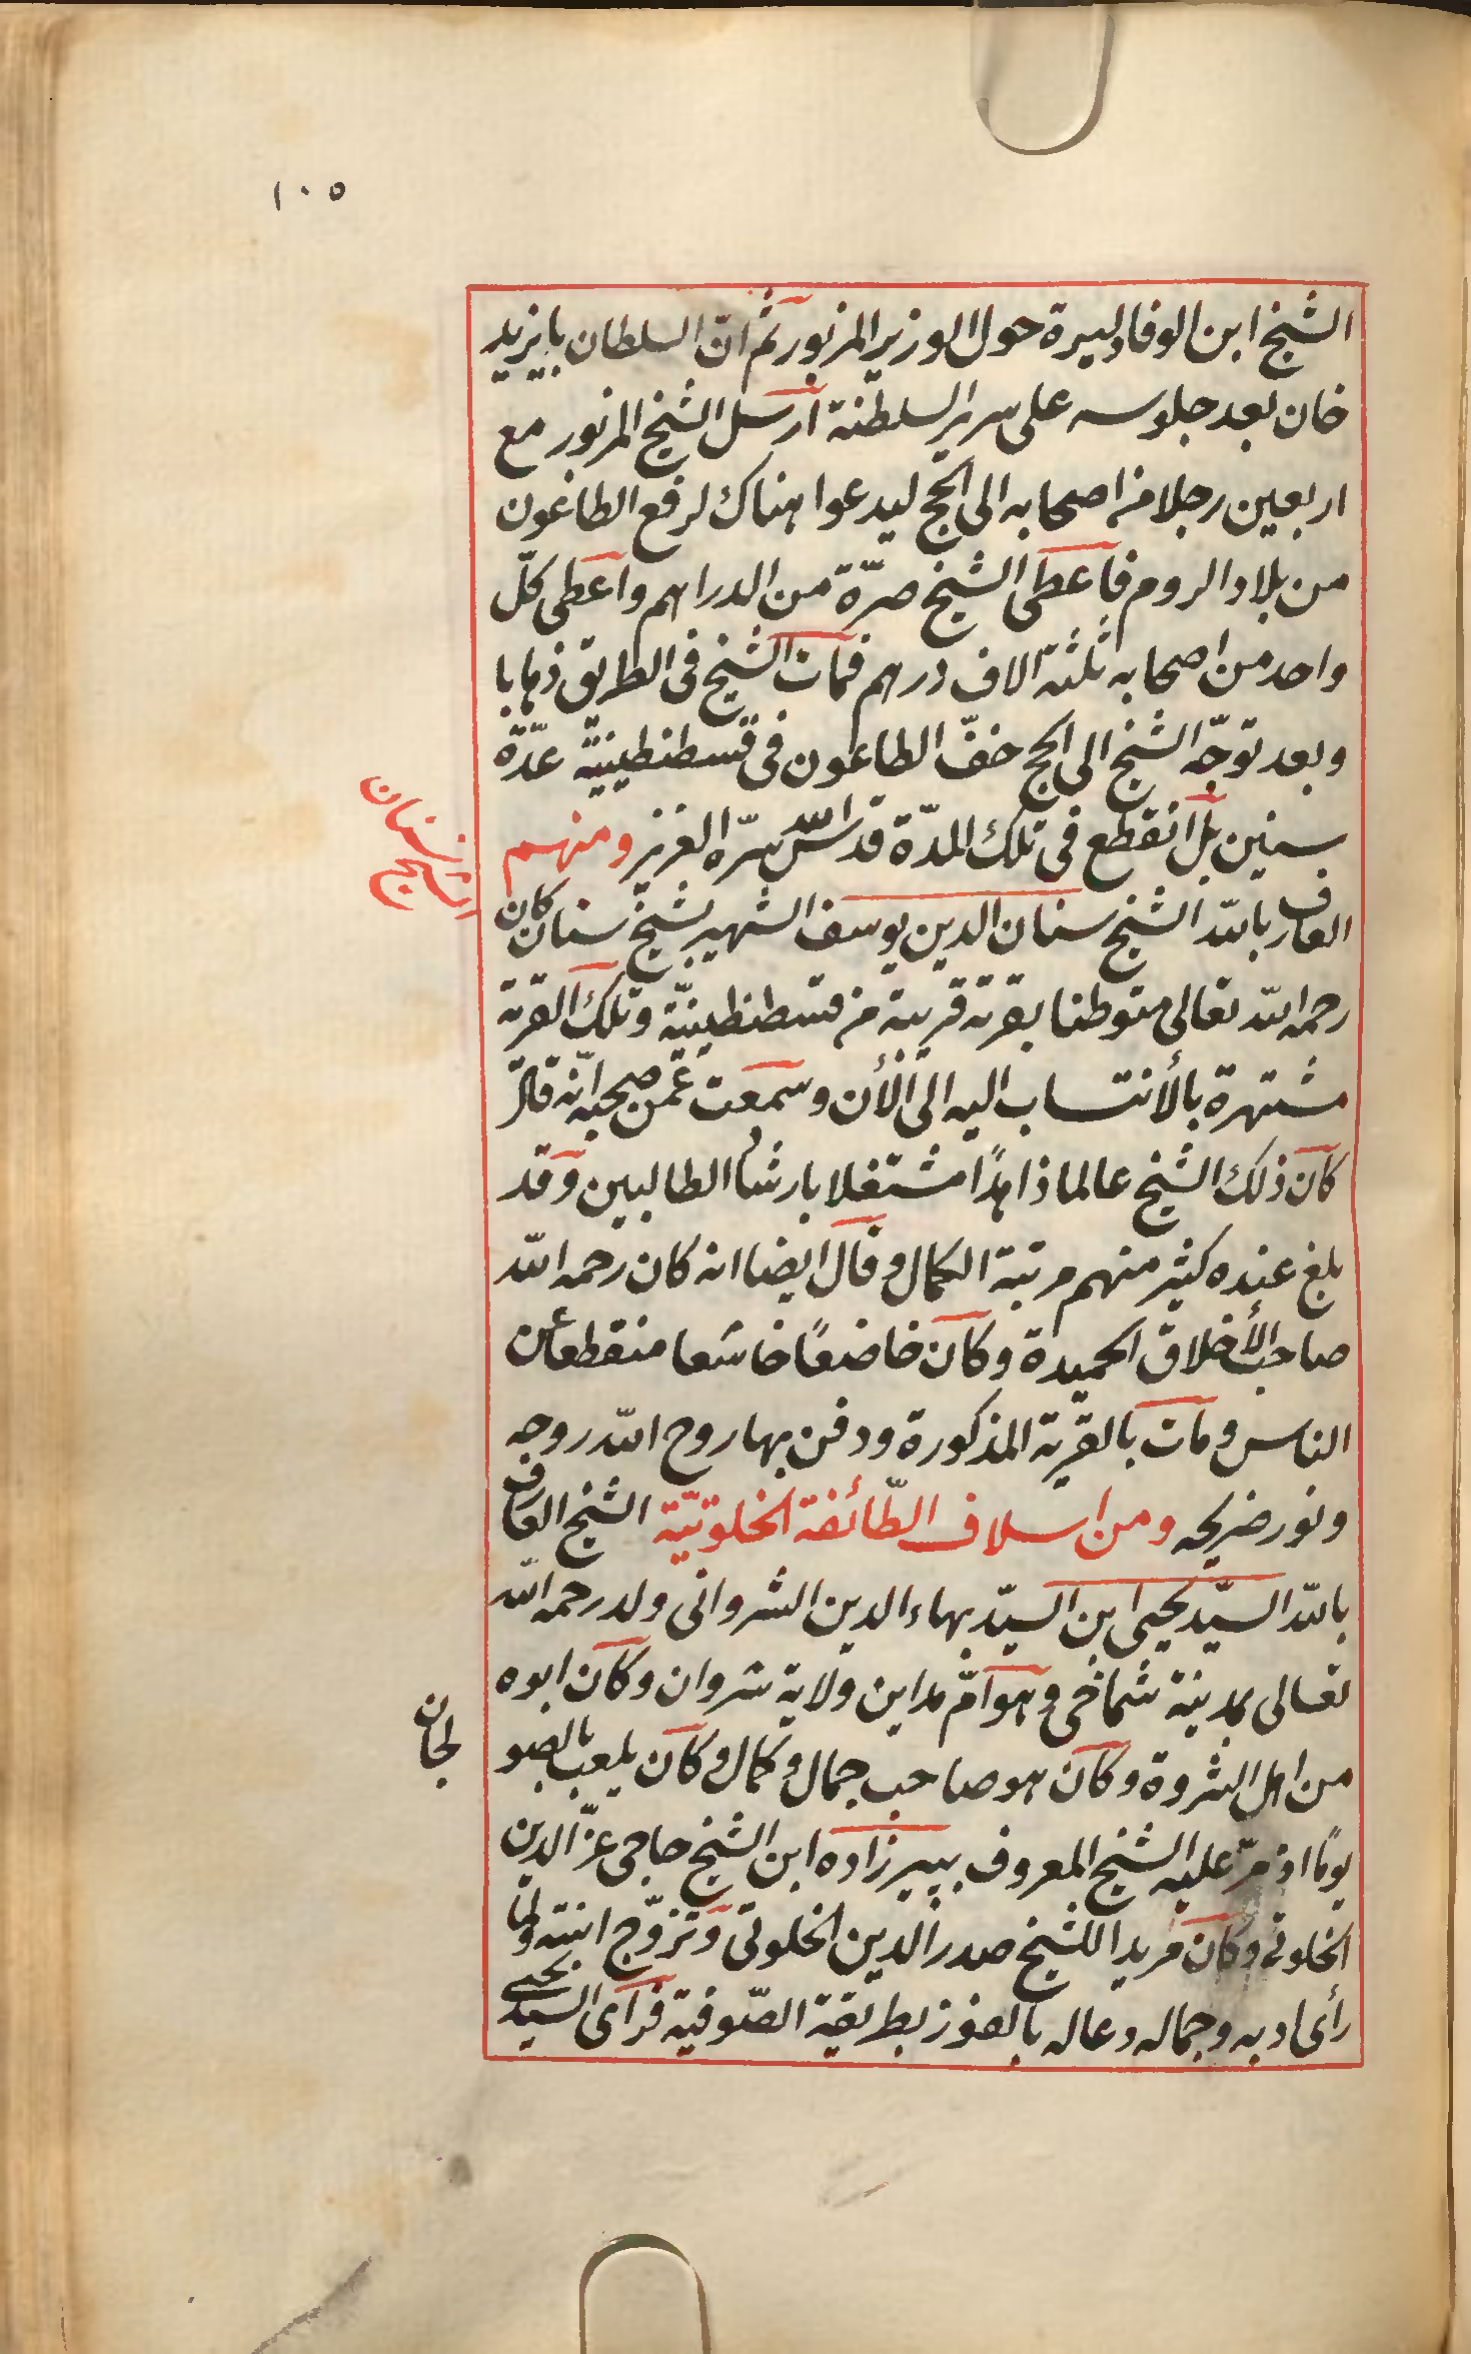 ١٠٥
الشيخ ابن الوفا دليبرة حول الوزير المزبور ثم انّ السلطان بايزيد
خان بعد جلوسه على سرير السلطنة ارسل الشيخ المزبور مع
اربعين رجلا من اصحابه الى الحج ليدعوا هناك لرفع الطاغون
من بلاد الروم فاعطى الشيخ صرّة من الدراهم واعطى كلّ
واحد من اصحابه ثلثة الاف درهم فمات الشيخ فى الطريق ذهابا
وبعد توجّه الشيخ الى الحج خفّ الطاعون فى قسطنطينيّة عدّة
سنين بل انقطع فى تلك المدّة قدس اللّه سرّه العزيز ومنهم
الشيخ سنان
العارف باللّه الشيخ سنان الدين يوسف الشهير بشيخ سنان كان
رحمه اللّه تعالى متوطنا بقرية قريبة من قسطنطينيّة وتلك القرية
مشتهرة بالأنتساب اليه الى الأن وسمعت عمّن صحبه انّه قال
كان ذلك الشيخ عالما ذاهدًا مشتغلا بارشاد الطالبين وقد
بلغ عنده كثير منهم مرتبة الكمال وقال ايضا انه كان رحمه اللّه
صاحب الأخلاق الحميدة وكان خاضعًا خاشعا منقطعا عن
الناس ومات بالقرية المذكورة ودفن بها روح اللّه روحه
ونور ضريحه ومن اسلاف الطّائفة الخلوتيّة الشيخ العارف
باللّه السيّد يحيى ابن السيّد بهاء الدين الشروانى ولد رحمه اللّه
تعالى بمدينة شماخى وهو امّ مداين ولاية شروان وكان ابوه
من اهل الثروة وكان هو صاحب جمال وكمال وكان يلعب بالصو
لجان
يومًا اذ مرّ عليه الشيخ المعروف ببيرزاده ابن الشيخ حاجى عزّ الدين
الخلوتى وكان مريدا للشيخ صدر الدين الخلوتى وتزوّج ابنته ولما
رأى ادبه وجماله دعاله بالفوز بطريقة الصّوفية فرآى السيد يحيى